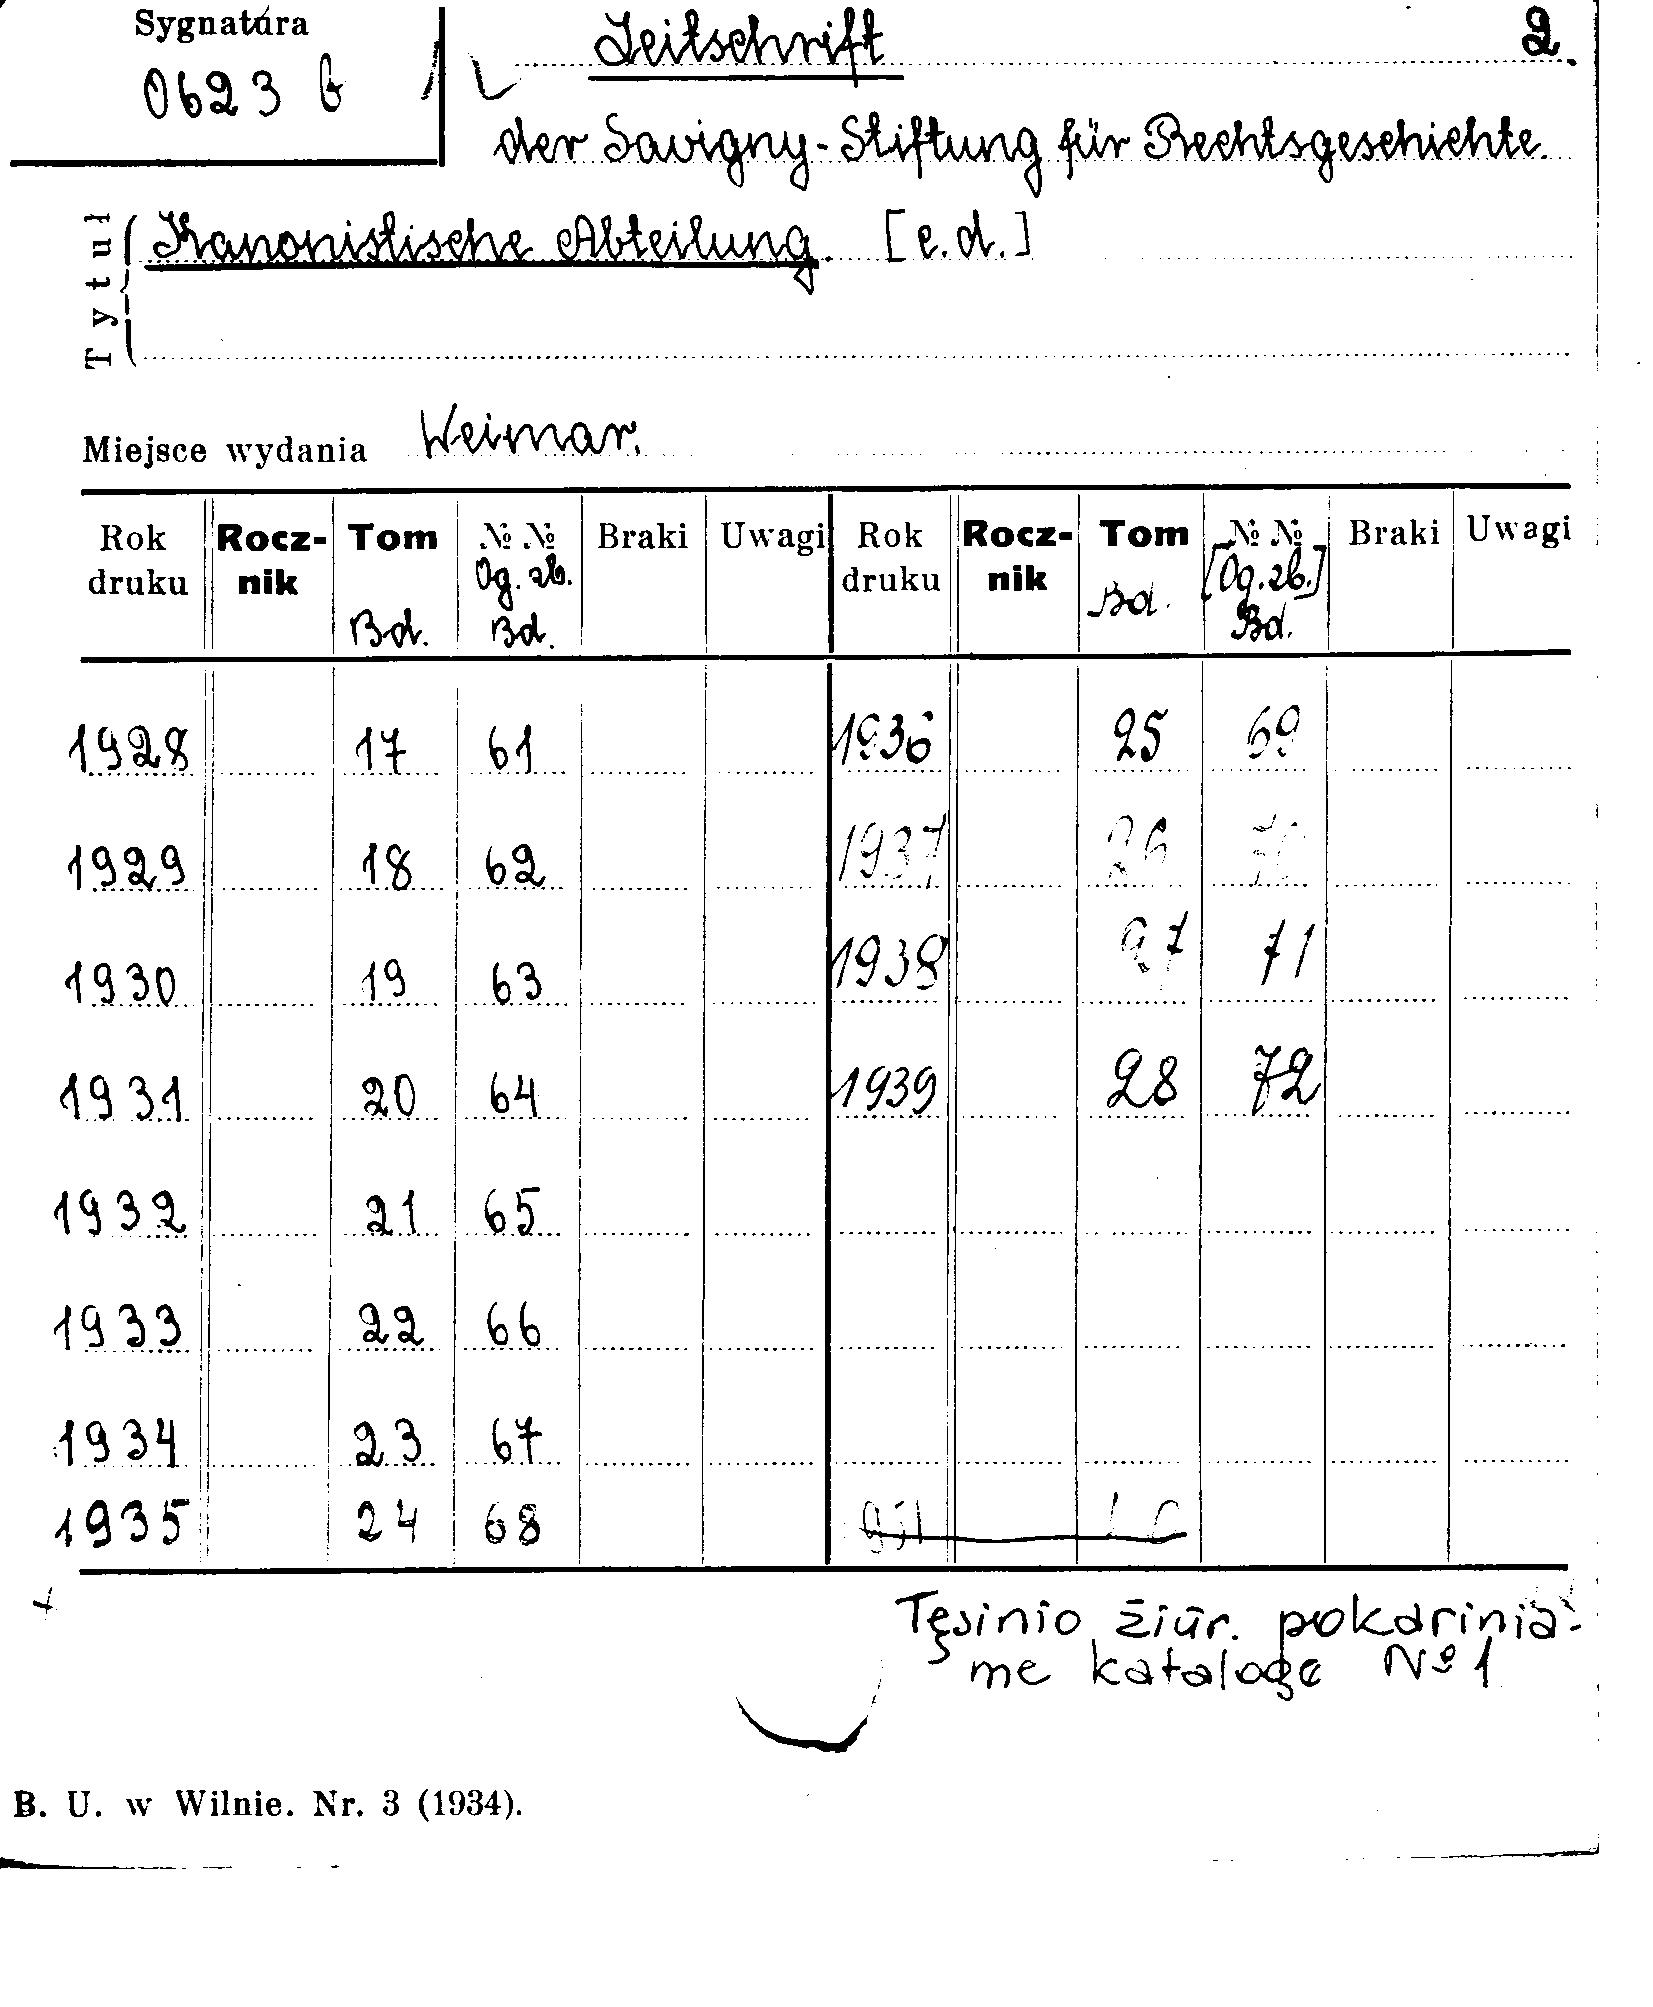 Sygnatura
0623 b
Zeitschrift 2.
der Savigny-Stiftung für Rechtsgeschichte.
Tytuł
Kanonistische Abteilung. [c.d.]
Miejsce wydania Weimar.
Rok druku Rocznik Tom Bd. № № Og. zb. Bd. Braki Uwagi Rok druku Rocznik Tom Bd. № № [Og. zb.] Bd. Braki Uwagi
1928 17 61 1936 25 69
1929 18 62 1937 26 70
1930 19 63 1938 27 71
1931 20 64 1939 28 72
1932 21 65
1933 22 66
1934 23 67
1935 24 68
Tęsinio žiūr. pokarinia-
me kataloge № 1
B. U. w Wilnie. Nr. 3 (1934).